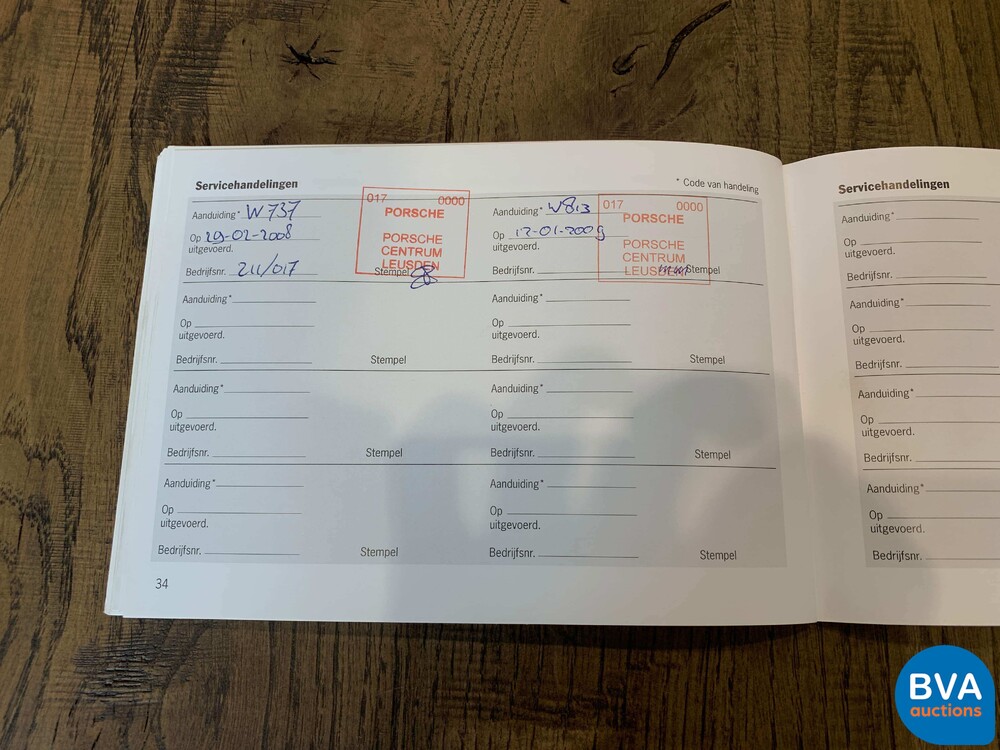 Servicehandelingen
* Code van handeling
Aanduiding* W737
Op 29-02-2008
uitgevoerd.
Bedrijfsnr. 211/017
Stempel
017 0000
PORSCHE
PORSCHE
CENTRUM
LEUSDEN
Aanduiding* W813
Op 12-01-2009
uitgevoerd.
Bedrijfsnr.
Stempel
017 0000
PORSCHE
PORSCHE
CENTRUM
LEUSDEN
Aanduiding*
Op
uitgevoerd.
Bedrijfsnr. Stempel
Aanduiding*
Op
uitgevoerd.
Bedrijfsnr. Stempel
Aanduiding*
Op
uitgevoerd.
Bedrijfsnr. Stempel
Aanduiding*
Op
uitgevoerd.
Bedrijfsnr. Stempel
Aanduiding*
Op
uitgevoerd.
Bedrijfsnr. Stempel
Aanduiding*
Op
uitgevoerd.
Bedrijfsnr. Stempel
34
Servicehandelingen
Aanduiding*
Op
uitgevoerd.
Bedrijfsnr.
Aanduiding*
Op
uitgevoerd.
Bedrijfsnr.
Aanduiding*
Op
uitgevoerd.
Bedrijfsnr.
Aanduiding*
Op
uitgevoerd.
Bedrijfsnr.
BVA
auctions